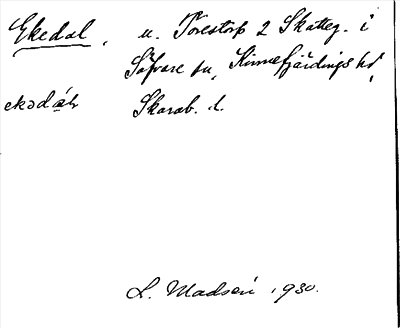 Ekedal, u. Torestorp 2 Skatteg. i
Säfvare sn, Kinnefjärdings hd,
ekədɑ́ɫ Skarab. l.
L. Madsén 1930.